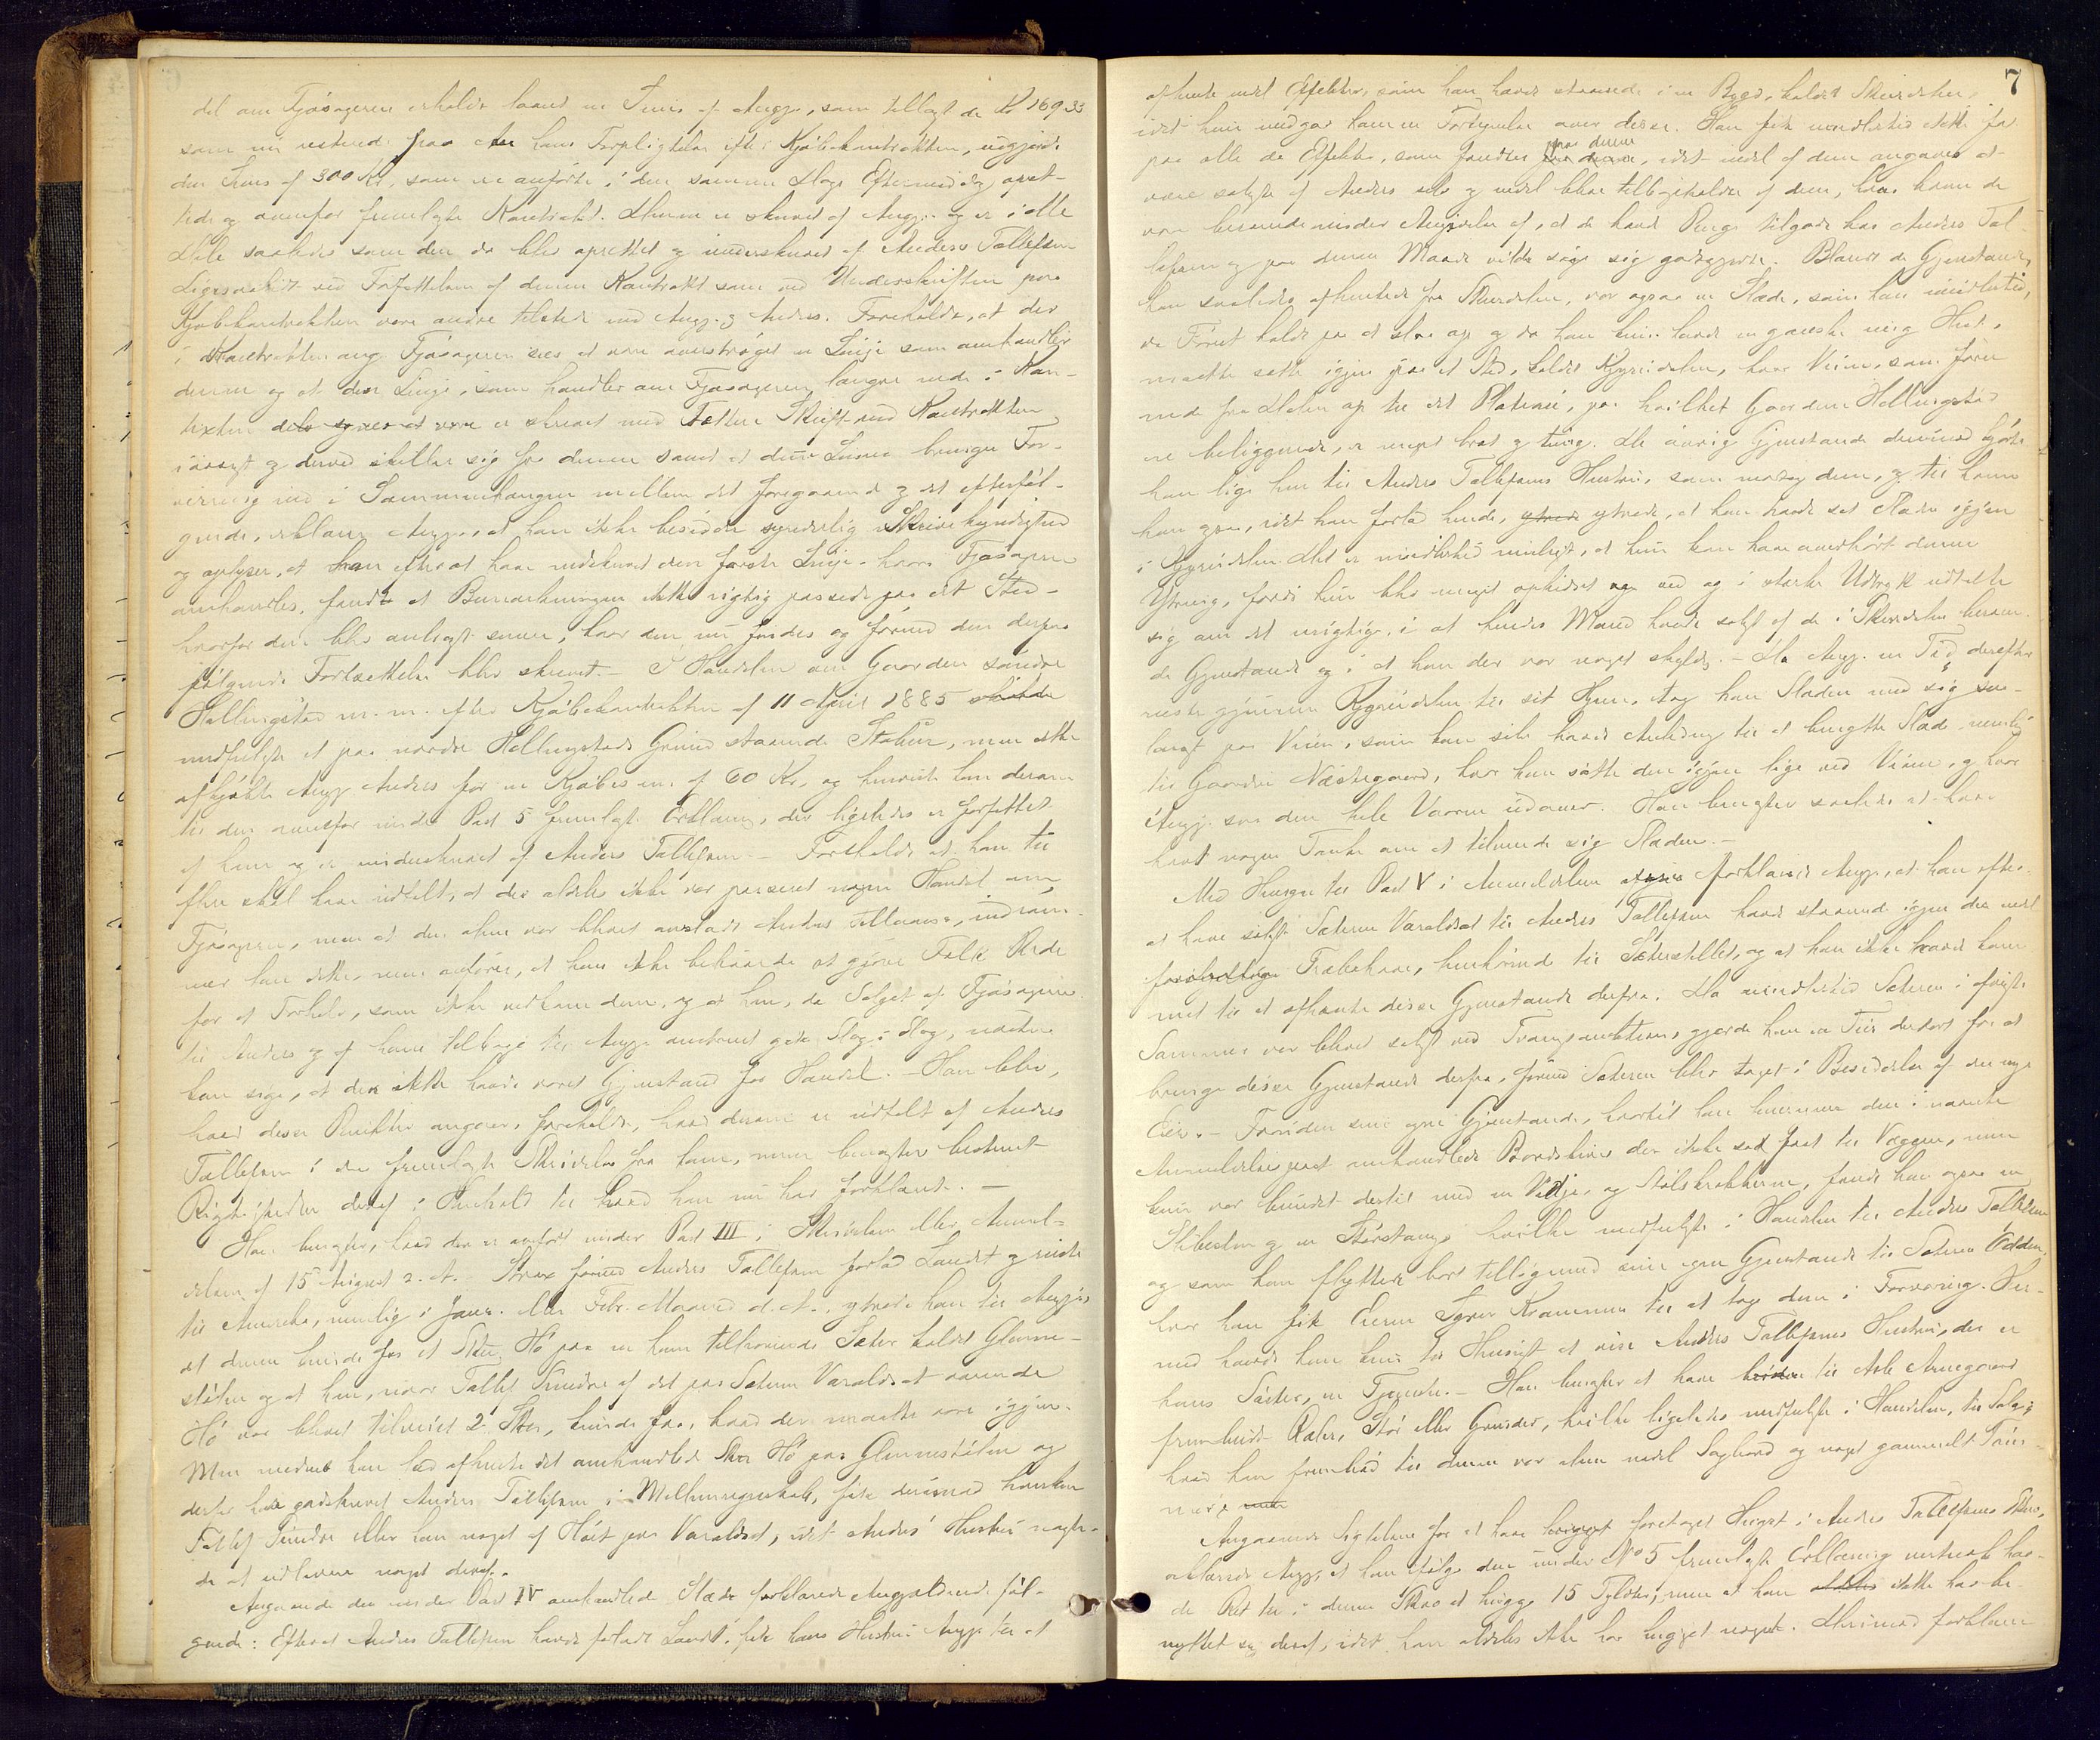 del om Fjøsageren erholdt laant en Sum af Angj., som tillagt de Kr 169.33
som nu resterede paa hans Forpligtelse efter Kjøbekontrakten, udgjorde
den Sum af 300 Kr, som er anført i den samme Dags Eftermiddag opret-
tede og ovenfor fremlagte Kontrakt. Denne er skrevet af Angj. og er i alle
Dele saaledes som den da blev oprettet og underskrevet af Anders Tollefsen
Ligesaalidt ved Forfattelsen af denne Kontrakt som ved Underskriften paa
Kjøbekontrakten vare andre tilstede end Angj. og Anders. Foreholdt, at der
i Kontrakten ang. Fjøsageren sees at være overstrøget en Linje som omhandler
denne og at den Linje, som handler om Fjøsageren længere nede i Kon-
texten er skrevet med tættere Skrift end Kontrakten
iøvrigt og derved skiller sig fra denne samt at denne Linea bringer For-
virring ind i Sammenhængen mellem det foregaaende og det efterføl-
gende, erklærer Angj., at han ikke besidder synderlig Skrivekyndighed
og oplyser, at han efterat have nedskrevet den første Linje, hvori Fjøsageren
omhandles, fandt at Bemærkningen ikke rigtig passede paa det Sted -
hvorfor den blev anbragt senere, hvor den nu findes og førend den derpaa
følgende Fortsættelse blev skrevet. - I Handelen om Gaarden søndre
Hellingstad m. m. efter Kjøbekontrakten af 11 April 1885
medfulgte et paa nordre Hellingstads Grund staaende Stabur, men dette
afkjøbte Angj. Anders for en Kjøbesum af 60 Kr. og henviste han derom
til den ovenfor under Post 5 fremlagte Erklæring, der ligeledes er forfattet
af ham og er underskrevet af Anders Tollefsen. - Foreholdt at han til
flere skal have udtalt, at der aldeles ikke var passeret nogen Handel om
Fjøsageren, men at den alene var bleven overladt Anders tillaans, indrøm-
mer han dette, men anfører, at han ikke behøvede at gjøre Folk Rede
for et Forhold, som ikke vedkom dem, og at han, da Salget af Fjøsageren
til Anders og af ham tilbage til Angj. omtrent gik Slag i Slag, nødtes
kan sige, at den ikke havde været Gjenstand for Handel. - Han blev,
hvad disse Punkter angaar, foreholdt, hvad derom er udtalt af Anders
Tollefsen i den fremlagte Skrivelse fra ham, men benægter bestemt
Rigtigheden deraf i Henhold til hvad han nu har forklaret. -
Han benægter, hvad der er anført under Post III i Skrivelsen eller Anmel-
delsen af 15 August d. A. Strax førend Anders Tollefsen forlod Landet og reiste
til Amerika, nemlig i Janr. eller Febr. Maaned d. A., ytrede han til Angj.,
at denne kunde faa et Stør Hø paa en ham tilhørende Sæter kaldet Glenne-
støten og at han, naar Tollef Sundre af det paa Sæteren Varaldset værende
Hø var blevet tilveiet 2 Stør, kunde faa, hvad der maatte være igjen.
Men medens han lod afhente det omhandlede Stør Hø paa Glennestøten og
derfor har godskrevet Anders Tollefsen i Mellemregnskab, fik derimod hverken
Tollef Sundre eller han noget af Høiet paa Varaldset, idet Anders' Hustru nægte-
de at udlevere noget deraf.
Angaaende den under Post IV omhandlede Slæde forklarede Angjældende føl-
gende: Efterat Anders Tollefsen havde forladt Landet, fik hans Hustru Angj. til at
7
afhente endel Effekter, som han havde staaende i en Bygd, kaldet Skurdalen,
idet hun medgav ham en Fortegnelse over disse. Han fik imidlertid ikke fat
paa alle de Effekter, som fandtes paa denne, idet endel af dem angaves at
være solgte af Anders selv og endel blev tilbageholdte af dem, hos hvem de
vare beroende under Angivelse af, at de havde Penge tilgode hos Anders Tol-
lefsen og paa denne Maade vilde søge sig godtgjorte. Blandt de Gjenstande,
han saaledes afhentede fra Skurdalen, var ogsaa en Slæde, som han imidlertid,
da Føret holdt paa at slaa op og da han kun havde en ganske ung Hest,
maatte sætte igjen paa et Sted, kaldet Kygrudelen, hvor Veien, som fører
ned fra Dalen op til det Plateau, paa hvilket Gaarden Hellingstad
er beliggende, er meget brat og tung. De øvrige Gjenstande derimod kjørte
han lige hen til Anders Tollefsens Hustru, som modtog dem, og til hvem
han ogsaa, idet han forlod hende, ytrede, at han havde sat Slæden igjen
i Kygrudelen. Det er imidlertid muligt, at hun kan have overhørt denne
Ytring, fordi hun blev meget ophidset og ved og i stærke Udtryk udtalte
sig om det urigtige i at hendes Mand havde solgt af de i Skurdalen beroen-
de Gjenstande og i at han der var noget skyldig. - Da Angj. en Tid derefter
reiste gjennem Kygrudelen til sit Hjem, tog han Slæden med sig saa-
langt paa Veien, som han selv havde Anledning til at benytte Slæde, nemlig
til Gaarden Næstegaard, hvor han satte den igjen lige ved Veien, og hvor
Angj. saa den hele Vaaren udover. Han benægter saaledes at have
havt nogen Tanke om at tilvende sig Slæden. -
Med Hensyn til Post V i Anmeldelsen forklarede Angj., at han efter
at have solgt Sæteren Varaldset til Anders Tollefsen havde staaende igjen der endel
Træbohave, henhørende til Sæterstellet, og at han ikke havde kom-
met til at afhente disse Gjenstande derfra. Da imidlertid Sæteren i sidste
Sommer var blevet solgt ved Tvangsauktion, gjorde han en Tur derhen for at
bringe disse Gjenstande derfra, førend Sæteren blev taget i Besiddelse af den nye
Eier. - Foruden sine egne Gjenstande, hvortil han henregner den i nævnte
Anmeldelsespost omhandlede Bordskive der ikke sad fast til Væggen, men
kun var bundet dertil med en Vidje, og Stolskrakkerne, fandt han ogsaa en
Skibesten og en Størstang, hvilke medfulgte i Handelen til Anders Tollefsen
og som han flyttede bort tilligemed sine egne Gjenstande til Sæteren Ødden,
hvor han fik Eieren Syver Krammen til at tage dem i Forvaring. Her-
med havde han kun til Hensigt at vise Anders Tollefsens Hustru, der er
hans Søster, en Tjeneste. - Han benægter at have til Asle Annegaard
frembudt Raler, Stør eller Grinder, hvilke ligeledes medfulgte i Handelen, til Salg;
hvad han frembød til denne var alene endel Sagbord og noget gammelt Tøm-
mer.
Angaaende Sigtelsen for at have foretaget Hugst i Anders Tollefsens Skov,
erklærede Angj., at han ifølge den under No 5 fremlagte Erklæring vistnok hav-
de Ret til i denne Skov at hugge 15 Tylvter, men at han ikke har be-
nyttet sig deraf, idet han aldeles ikke har hugget noget. Derimod forklarer